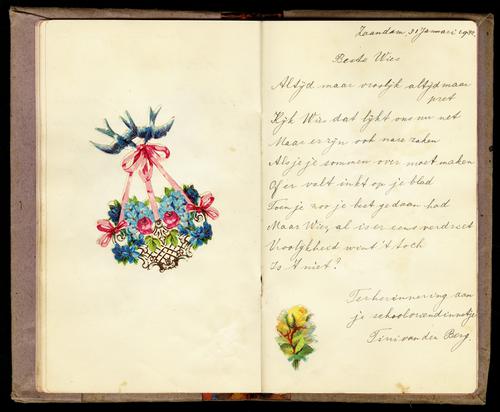 Zaandam, 31 Januari 19
Beste Wies
Altijd maar vroolijk altijd maar
pret
Kijk Wies dat lijkt ons nu net
Maar er zijn ook nare zaken
Als je je sommen over moet maken
Of er valt inkt op je blad
Toen je zoo je best gedaan had
Maar Wies, al is er eens verdriet
Vroolijkheid wint 't toch
Is 't niet?
Ter herinnering aan
je schoolvriendinnetje
Tini van den Berg.